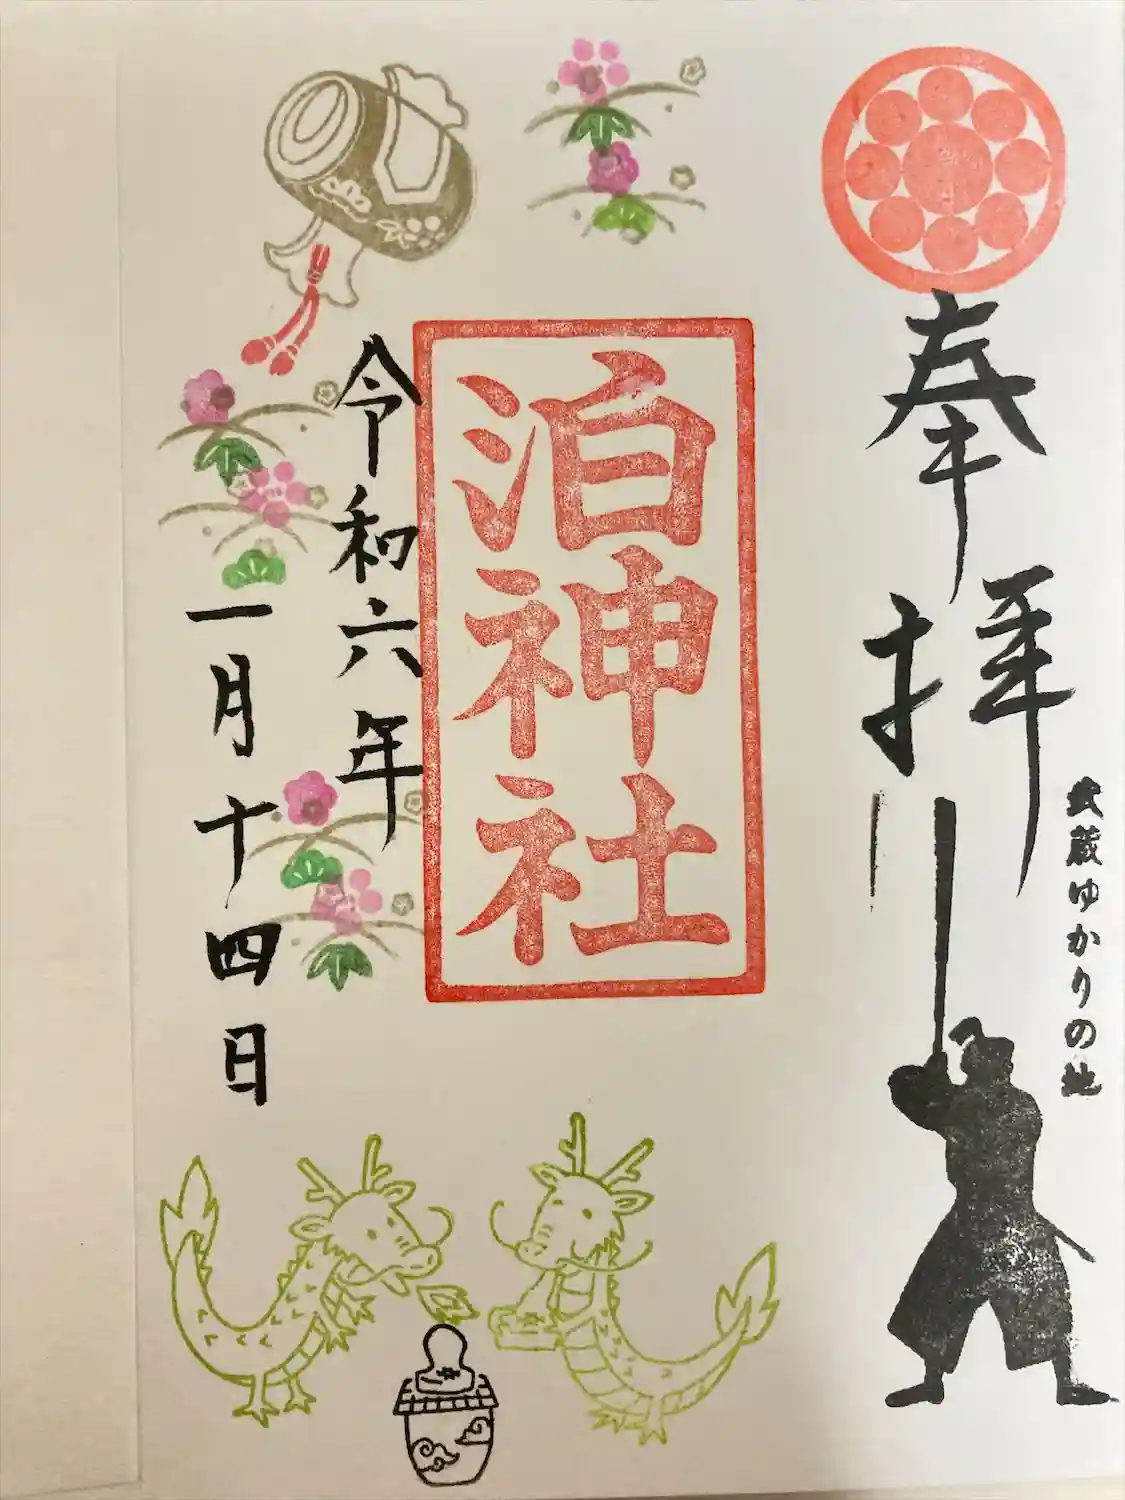 奉拝
武蔵ゆかりの地
泊神社
令和六年
一月十四日